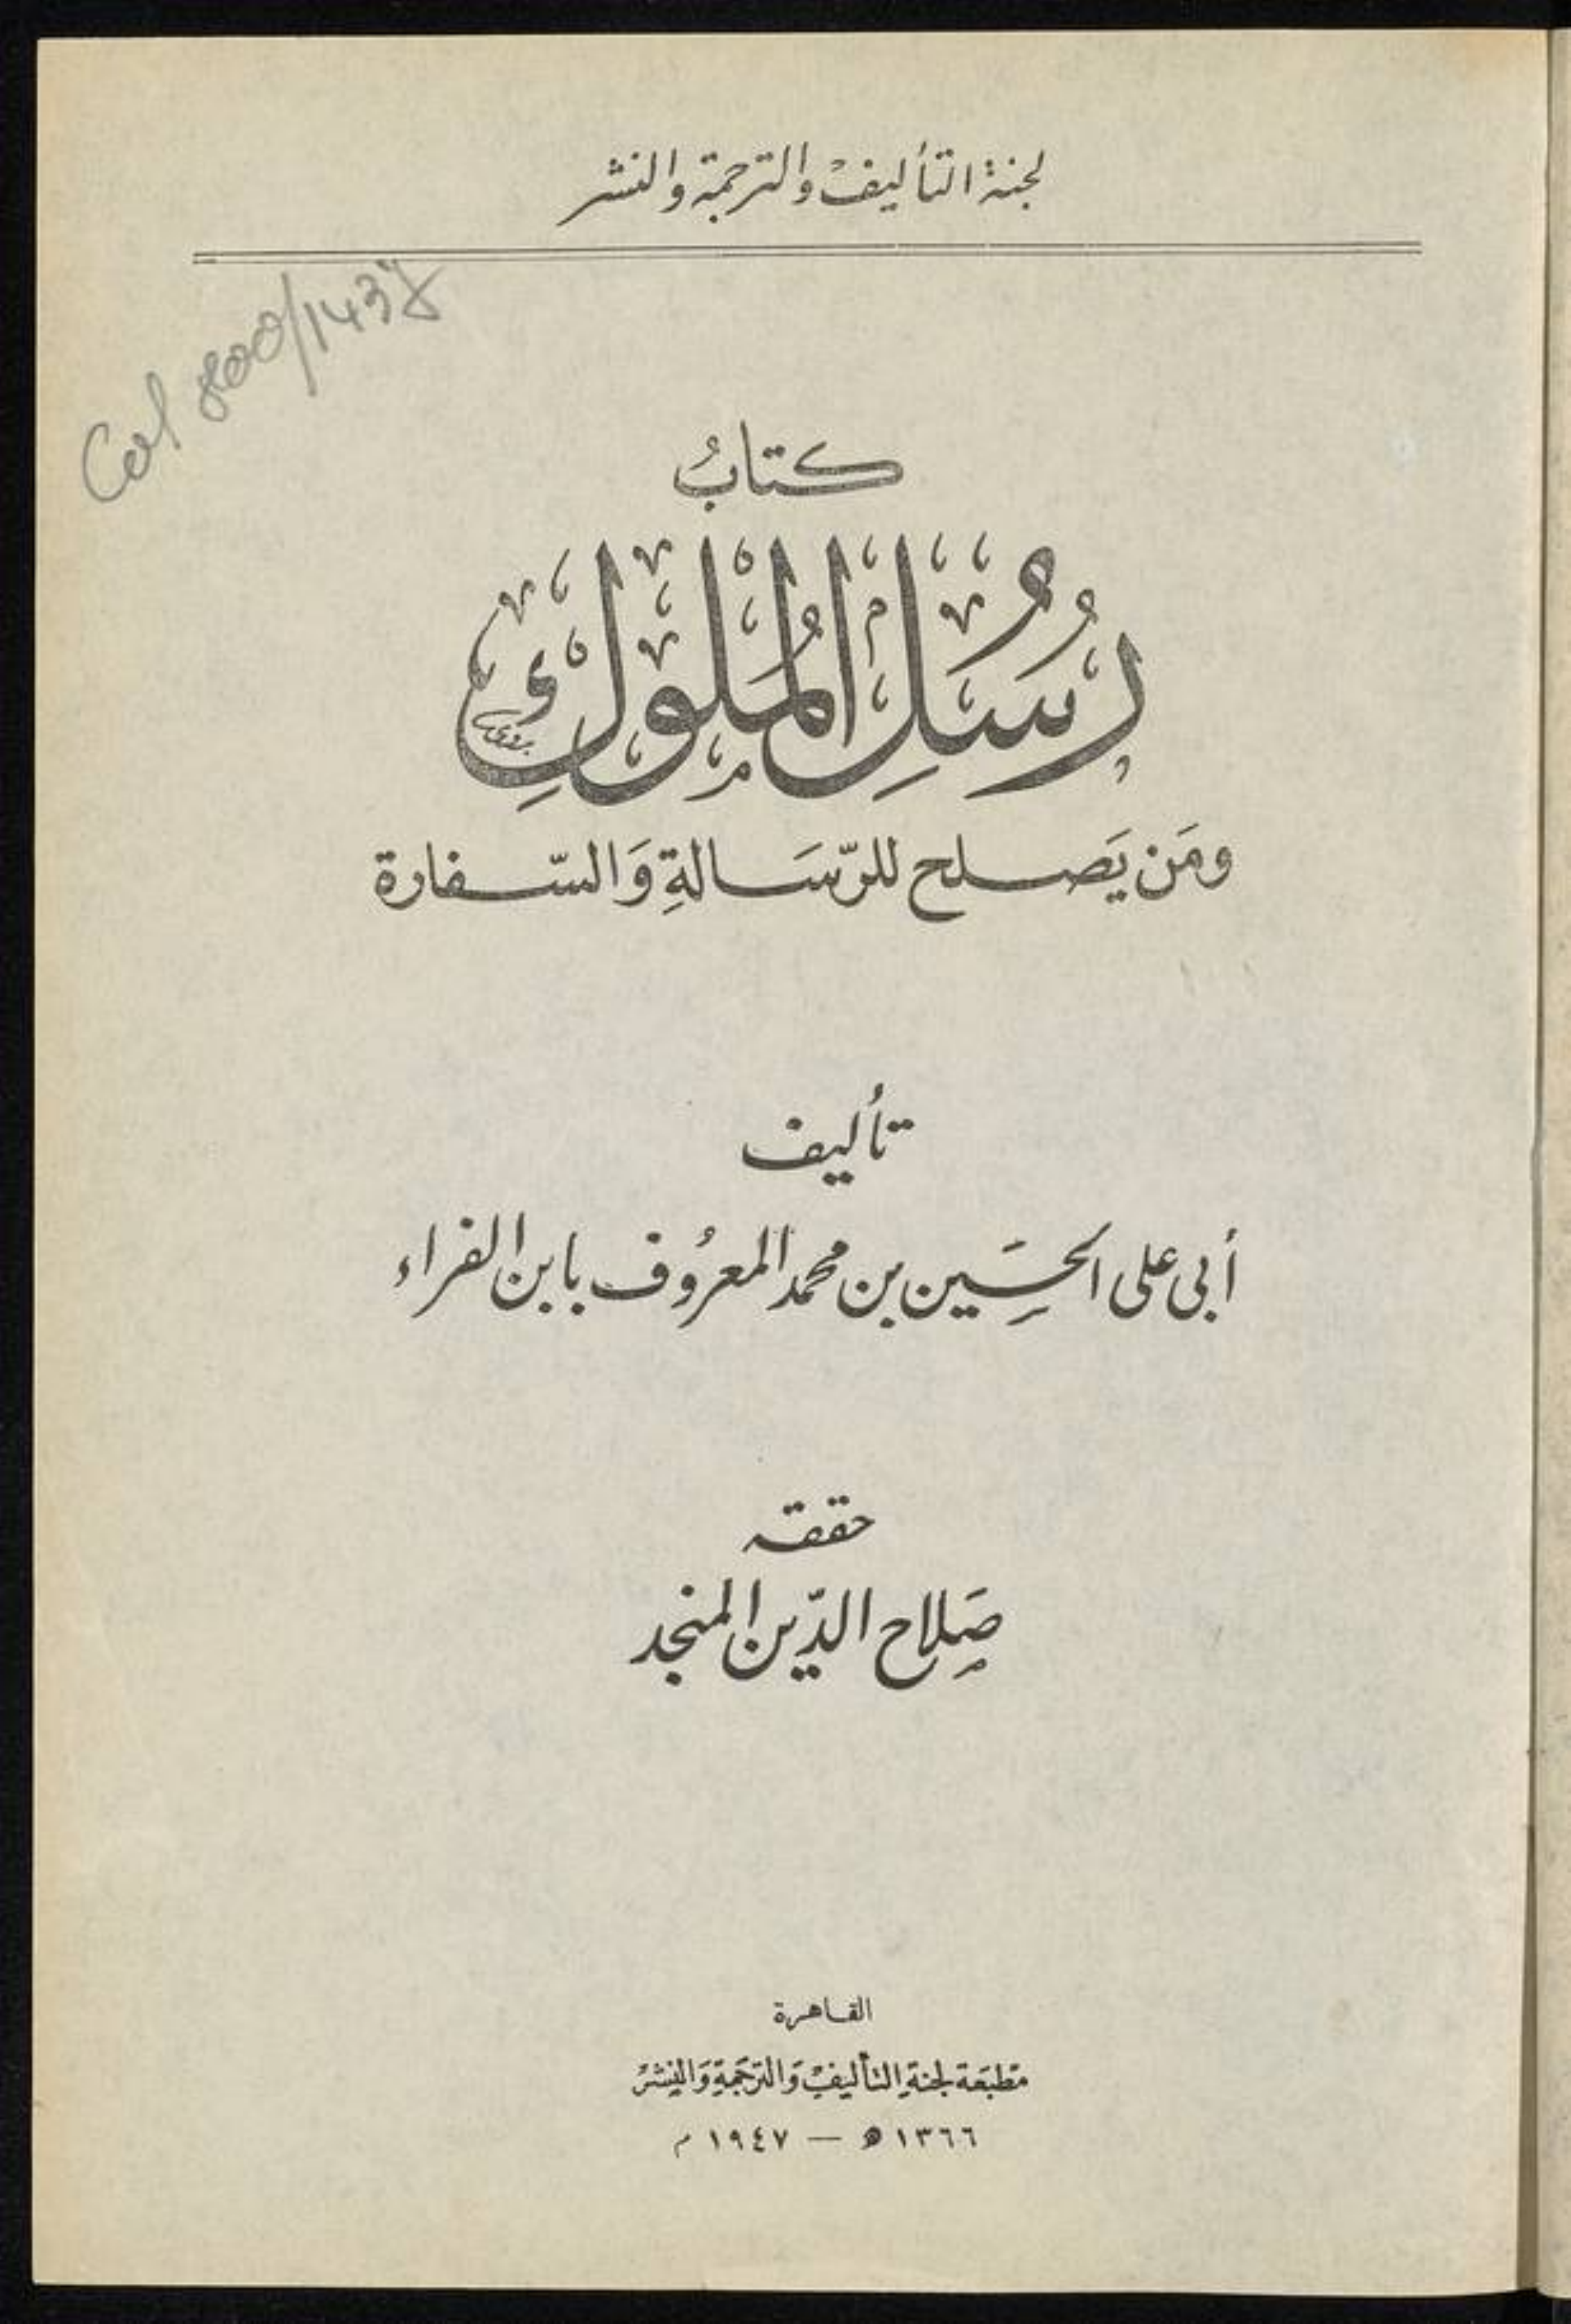 لجنة التأليف والترجمة والنشر
كتابُ
رُسُلِ المُلُوكِ
ومَن يَصلح للرّسَالةِ وَالسّفارة
تأليف
أبى على الحسَين بن محمد المعرُوف بابن الفراء
حققه
صَلاح الدّين المنجد
القاهرة
مَطبَعة لجنةِ التأليفْ وَالترجَمةِ وَالنشرْ
١٣٦٦ ه — ١٩٤٧ م